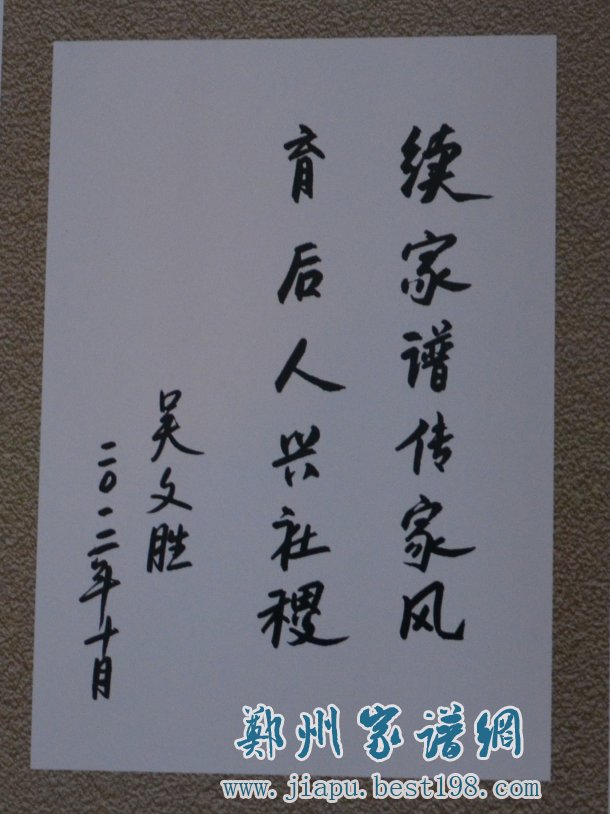 续家谱传家风
育后人兴社稷
吴文胜
二〇一二年十月
郑州家谱網
www.jiapu.best198.com